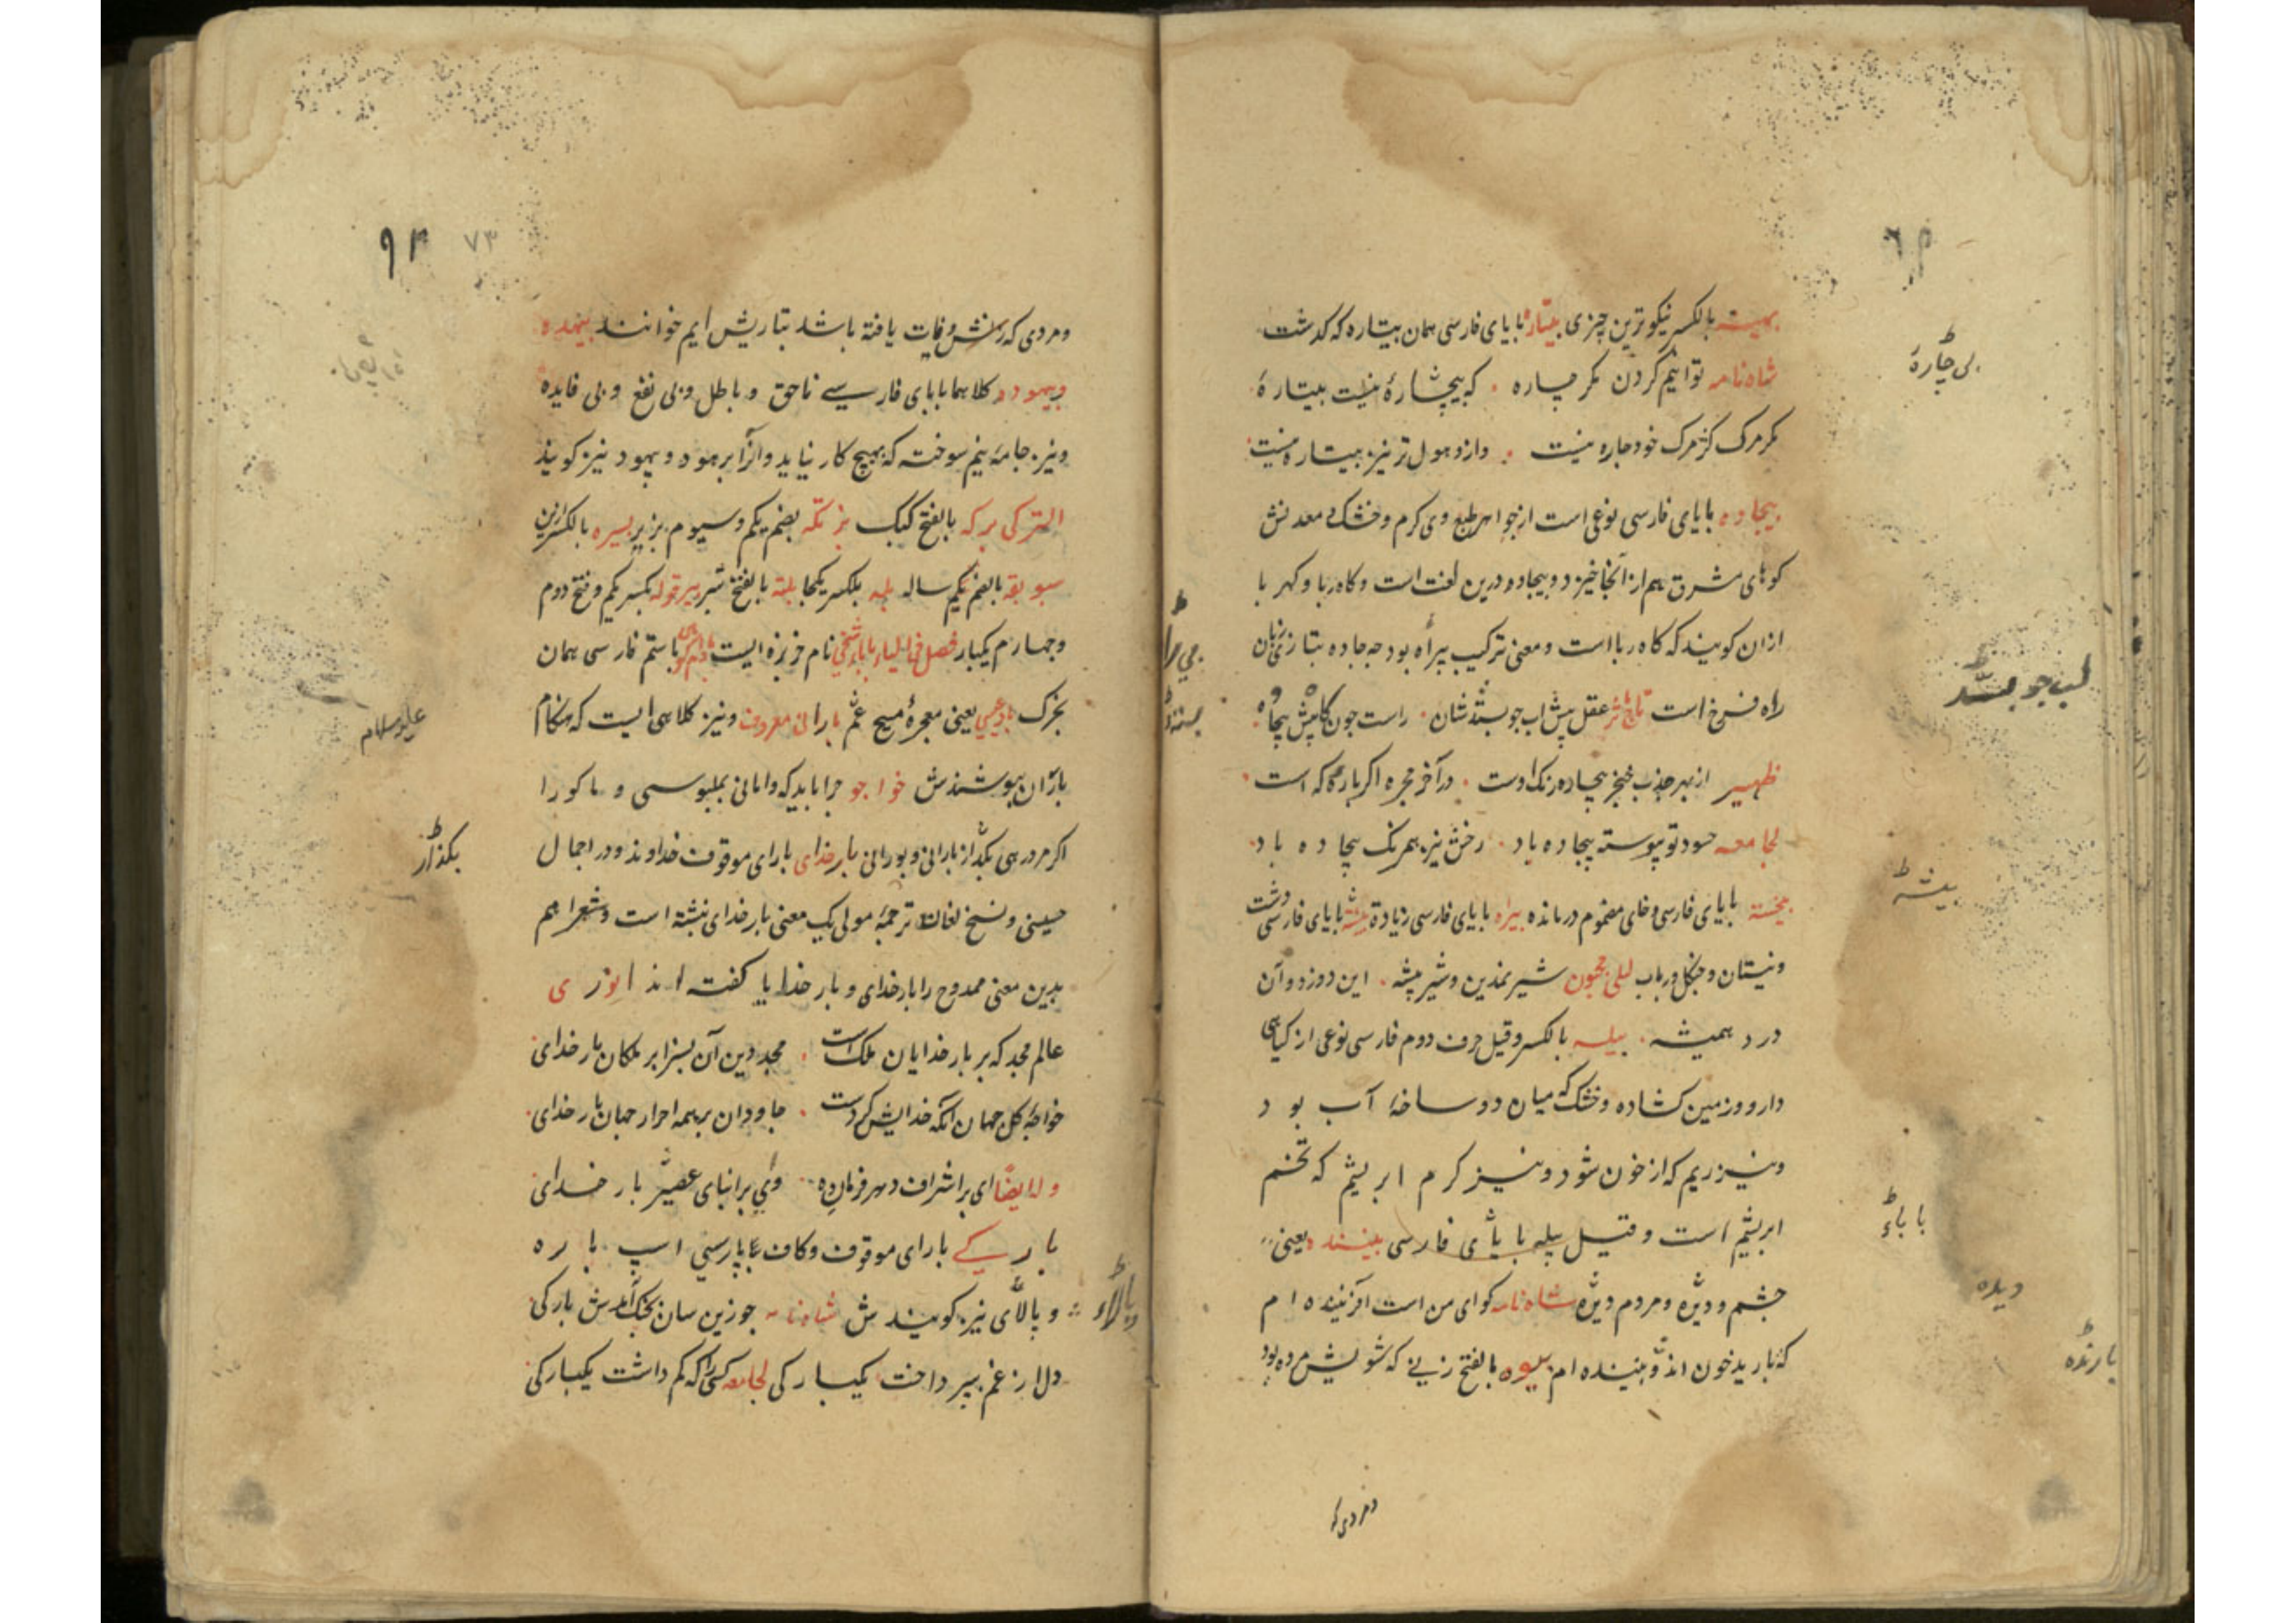 بهینه بالکسر نیکوترین چیزی بیتاره بابای فارسی همان بیتاره که گذشت
شاه نامه توانیم کردن مگر چاره که بیچارهٔ نیست بیتارهٔ
مگر مرگ کز مرگ خود چاره نیست وازو هول تر نیز بیتاره نیست
بیجاده بابای فارسی نوعی است از جواهر طبع وی گرم و خشک معدنش
کوهای مشرق هم از انجا خیزد و بیجاده درین لغت است و کاه ربا و کهربا
ازان کویند که کاه رباست و معنی ترکیب بیراه بود چه جاده بتازی زبان
راه فرخ است عقل پیش اب جو بستد شان راست جون کاه پیش بیجاده
ظهیر از بهر جذب خنجر بیجاده رنک اوست در آخر مجره اکر پاره که است
لجامعه حسود تو پیوسته بیجاده باد رخش نیز همرنک بیجاده باد
بیخسته بابای فارسی و خای مضموم درمانده بیراه بابای فارسی زیادة بیشه بابای فارسی دشت
ونیستان و جنکل و رباب لیلی مجنون شیر نمدین و شیر بیشه این دوزد و آن
درد همیشه بیله بالکسر و قیل حرف دوم فارسی نوعی از کیاهی
دارو و زمین کشاده و خشک که میان دو ساخهٔ آب بود
و نیز ریم که از خون شود و نیز کرم ابریشم که تخم
ابریشم است و قیل پیله با بای فارسی بیننده یعنی
چشم و دیزه و مردم دیزه شاه نامه کوای من است آفریننده ام
که بارید خون اندو بیننده ام بیوه بالفتح زنی که شویش مرده بود
بی چارهٔ
لب جو بستد
بیشه
با باء
دیده
بارنده
ومردی که
ومردی که زنش وفات یافته باشد بتازیش ایم خوانند بیهده
وبیهوده کلاهما بابای فارسی ناحق و باطل و بی نفع و بی فایده
ونیز جامه نیم سوخته که بهیچ کار نیاید و آنرا برهود و بیهود نیز کویند
الترکی برکه بالفتح کیک بزتکه بضم یکم و سیوم بزیر بسیره بالکسر این
سو بوقه بالضم یکم ساله بله بلکسر یکجا بلته بالفتح تبر بیرقوله بکسر یکم و فتح دوم
وچهارم یکبار فصل فی الیاء بابا شیخی نام خربزه ایست باستم فارسی همان
بخرک باد عیسی یعنی معجزهٔ مسیح عم بارانی معروف و نیز کلاهی ایست که هنکام
باران پوشندش خواجو چرا باید که وامانی بملبوسی و ماکورا
اکر مرد رهی بکذار از بارانی و بورانی بارخدای بارای موقوف خداوند و در اجمال
حسینی و نسخ لغات ترجمهٔ مولی یک معنی بارخدای نبشته است و شعرا هم
بدین معنی ممدوح را بارخدای و بار خدایا کفته اند انوری
عالم مجد که بر بار خدایان ملک است مجد دین آن بسزا بر ملکان بار خدای
خواجهٔ کل جهان آنکه خدایش کردست جاودان بر همه احرار جهان بار خدای
وله ایضا ای بر اشراف دهر فرمان ده وی بر ابنای عصر بار خدای
بارکی بارای موقوف و کاف پارسی اسپ باره
و بالای نیز کویندش شاه نامه جوزین سان بخنک آمدش بارکی
دل از غم بپرداخت یکبارکی لجامعه کسی را که کم داشت یکبارکی
علیه السلام
بکذار
۷۳